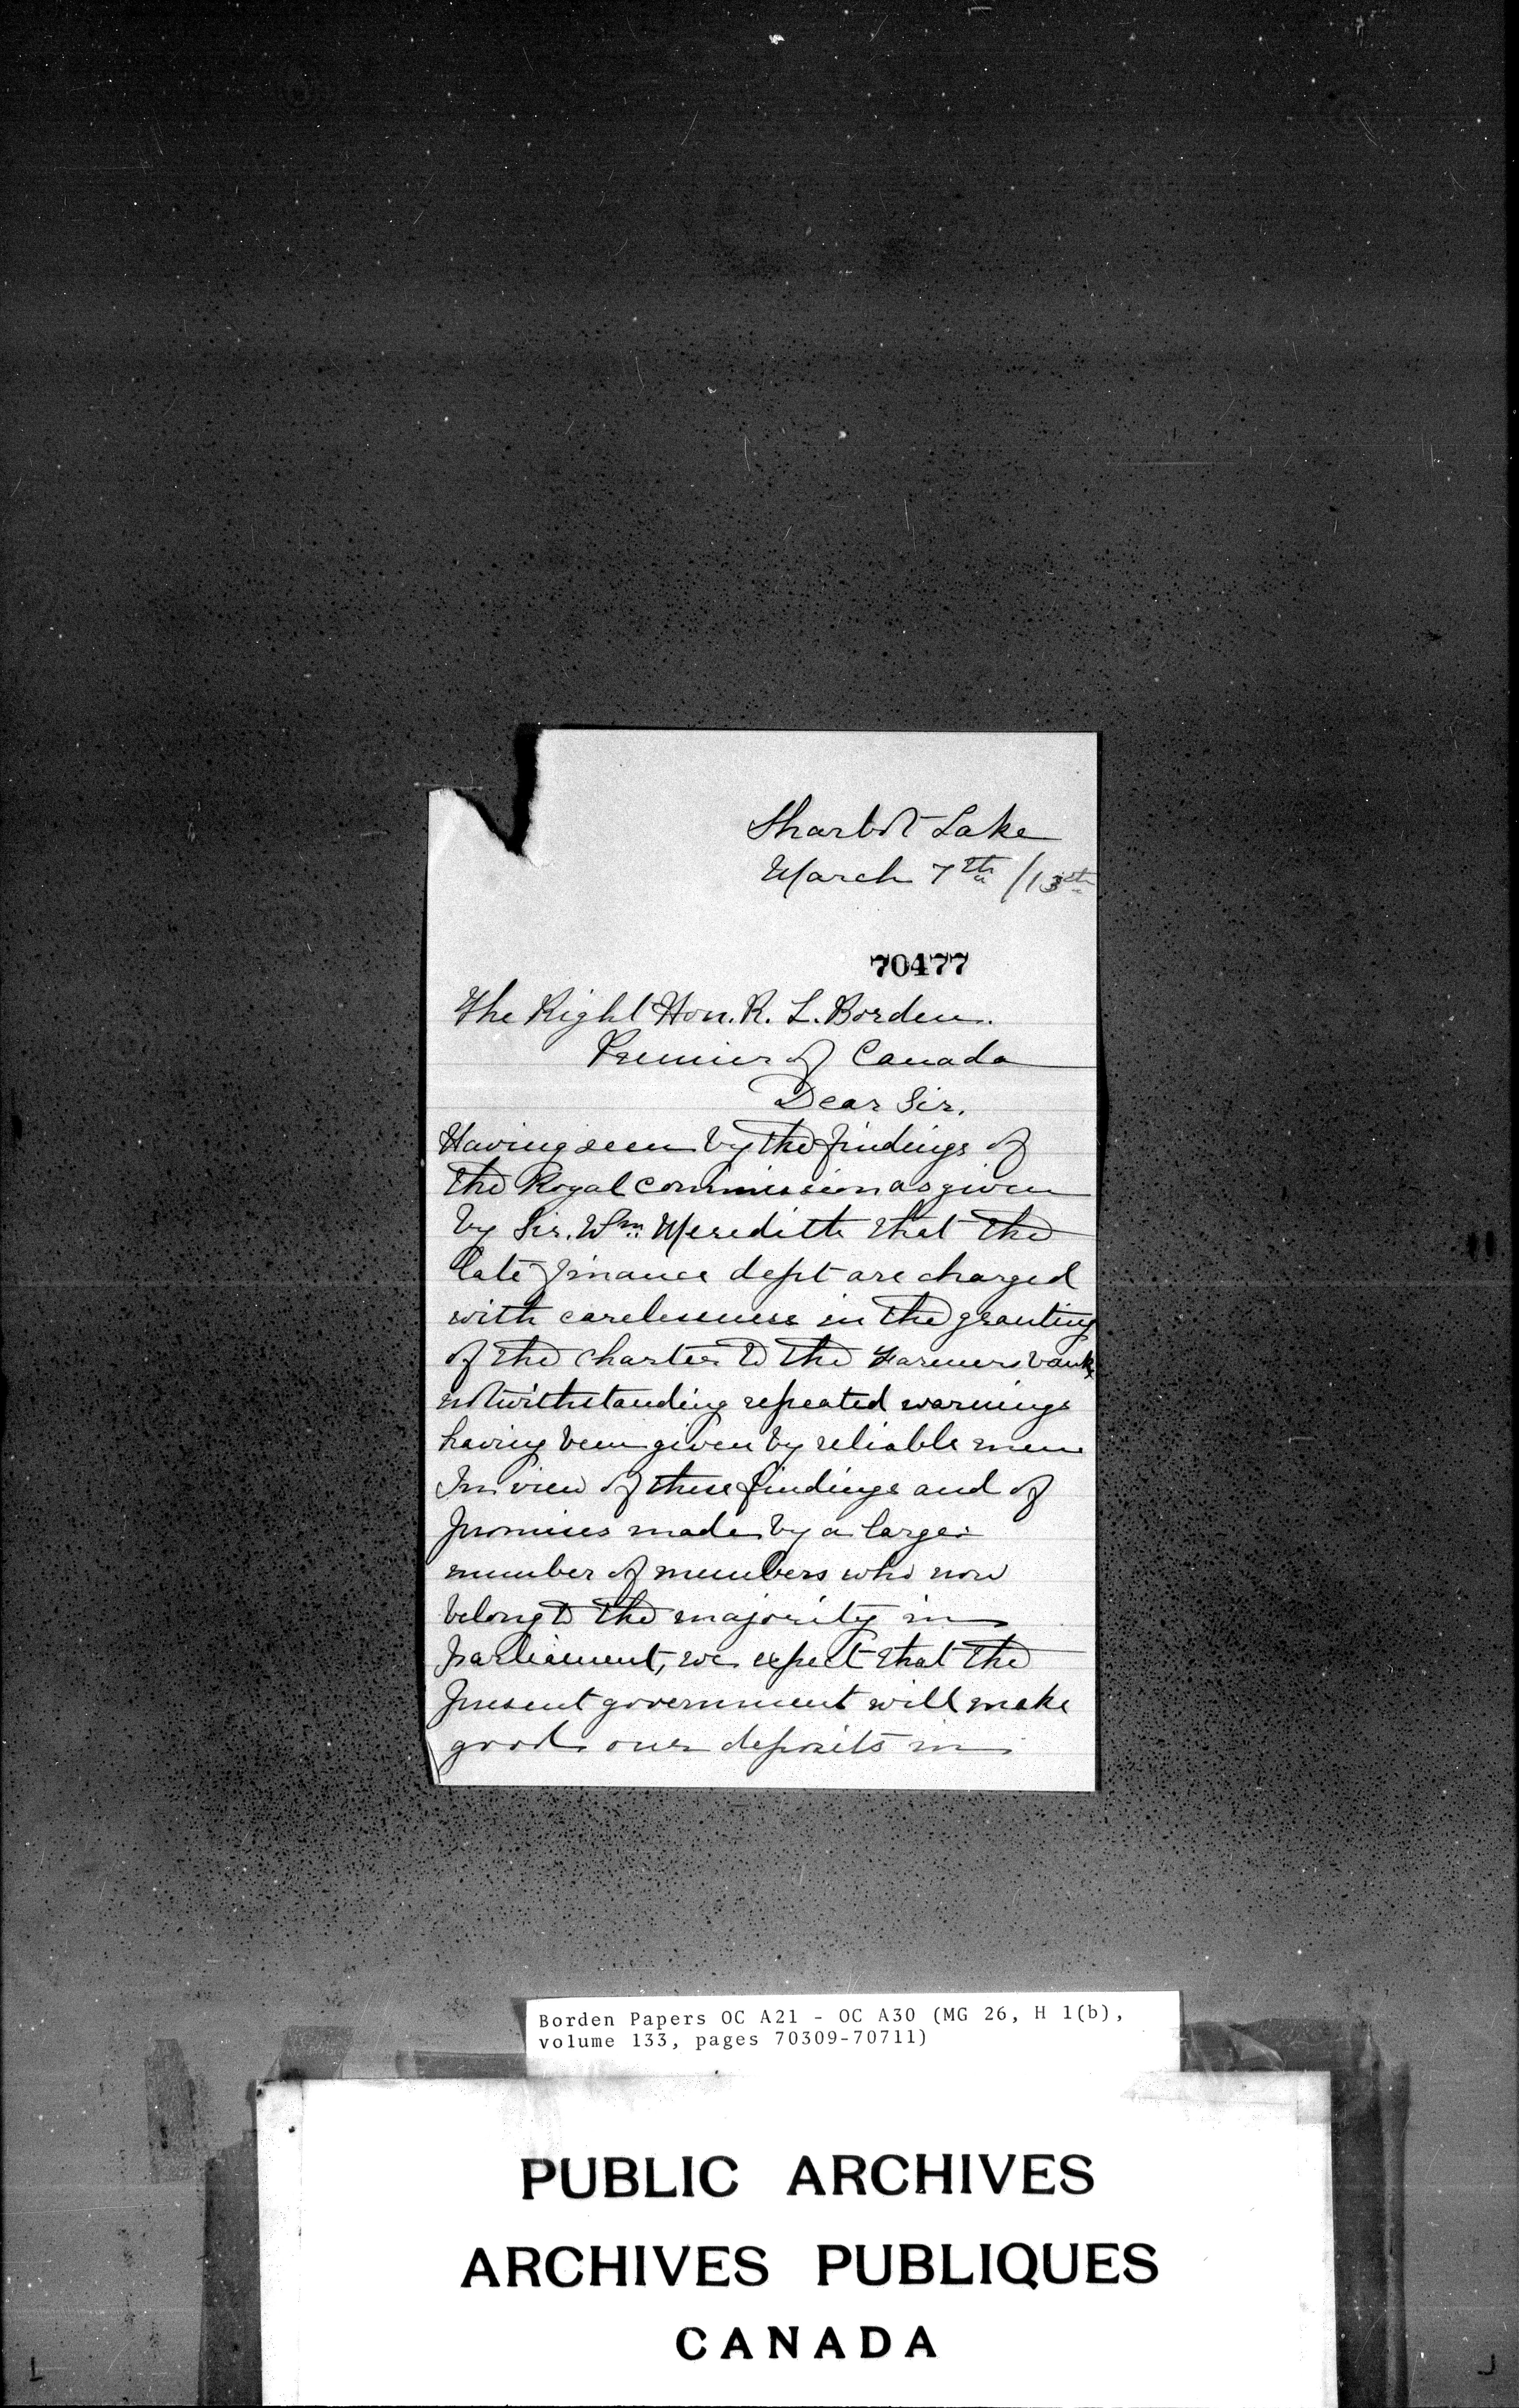 Sharbot Lake
March 7th /13th
70477
The Right Hon. R. L. Borden.
Premier of Canada
Dear Sir.
Having seen by the findings of
the Royal commission as given
by Sir. Wm. Meredith that the
late Finance dept are charged
with carelessness in the granting
of the charter to the Farmers bank
notwithstanding repeated warnings
having been given by reliable men
In view of these findings and of
promises made by a large
number of members who now
belong to the majority in
parliament, we expect that the
present government will make
good our deposits in
Borden Papers OC A21 - OC A30 (MG 26, H 1(b),
volume 133, pages 70309-70711)
PUBLIC ARCHIVES
ARCHIVES PUBLIQUES
CANADA